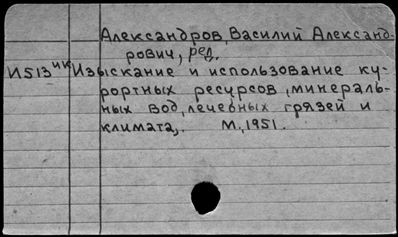 Александров, Василий Александ-
рович, ред.
И513ик Изыскание и использование ку-
рортных ресурсов, минераль-
ных вод, лечебных грязей и
климата,. М., 1951.